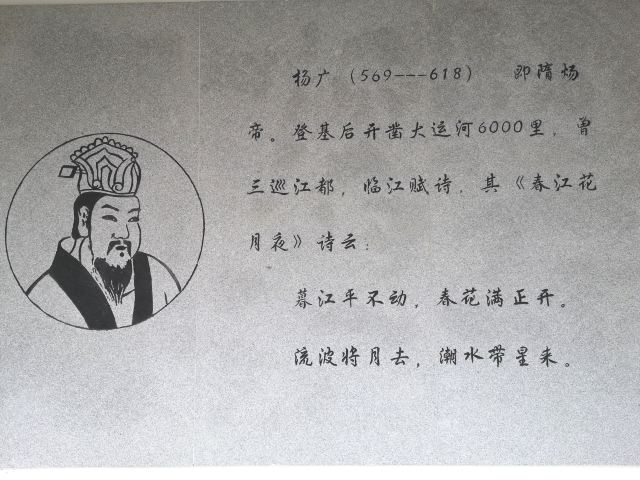 杨广（569---618） 即隋炀
帝。登基后开凿大运河6000里，曾
三巡江都，临江赋诗，其《春江花
月夜》诗云：
暮江平不动，春花满正开。
流波将月去，潮水带星来。